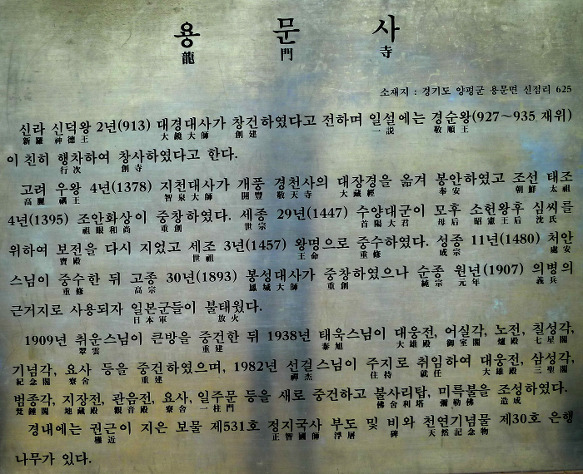 용문사
龍門寺
소재지 : 경기도 양평군 용문면 신점리 625
신라 신덕왕 2년(913) 대경대사가 창건하였다고 전하며 일설에는 경순왕(927~935 재위)
新羅 神德王 大鏡大師 創建 一說 敬順王
이 친히 행차하여 창사하였다고 한다.
行次 創寺
고려 우왕 4년(1378) 지천대사가 개풍 경천사의 대장경을 옮겨 봉안하였고 조선 태조
高麗 禑王 智泉大師 開豊 敬天寺 大藏經 奉安 朝鮮 太祖
4년(1395) 조안화상이 중창하였다. 세종 29년(1447) 수양대군이 모후 소헌왕후 심씨를
祖眼和尙 重創 世宗 首陽大君 母后 昭憲王后 沈氏
위하여 보전을 다시 지었고 세조 3년(1457) 왕명으로 중수하였다. 성종 11년(1480) 처안
寶殿 世祖 王命 重修 成宗 處安
스님이 중수한 뒤 고종 30년(1893) 봉성대사가 중창하였으나 순종 원년(1907) 의병의
重修 高宗 鳳城大師 重創 純宗 元年 義兵
근거지로 사용되자 일본군들이 불태웠다.
日本軍 放火
1909년 취운스님이 큰방을 중건한 뒤 1938년 태욱스님이 대웅전, 어실각, 노전, 칠성각,
翠雲 重建 泰旭 大雄殿 御室閣 爐殿 七星閣
기념각, 요사 등을 중건하였으며, 1982년 선걸스님이 주지로 취임하여 대웅전, 삼성각,
紀念閣 寮舍 重建 禪杰 住持 就任 大雄殿 三聖閣
범종각, 지장전, 관음전, 요사, 일주문 등을 새로 중건하고 불사리탑, 미륵불을 조성하였다.
梵鍾閣 地藏殿 觀音殿 寮舍 一柱門 佛舍利塔 彌勒佛 造成
경내에는 권근이 지은 보물 제531호 정지국사 부도 및 비와 천연기념물 제30호 은행
權近 正智國師 浮屠 碑 天然記念物
나무가 있다.